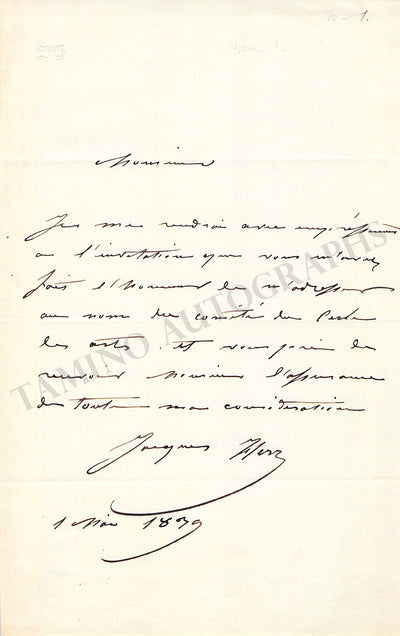 1.
Monsieur
Je me rendrai avec empressement
a l'invitation que vous m'avez
fait l'honneur de m'adresser
au nom du comité du Cercle
des arts. et vous prie de
recevoir Monsieur l'assurance
de toute ma consideration
Jacques Herz
1 Mai 1839
TAMINO AUTOGRAPHS